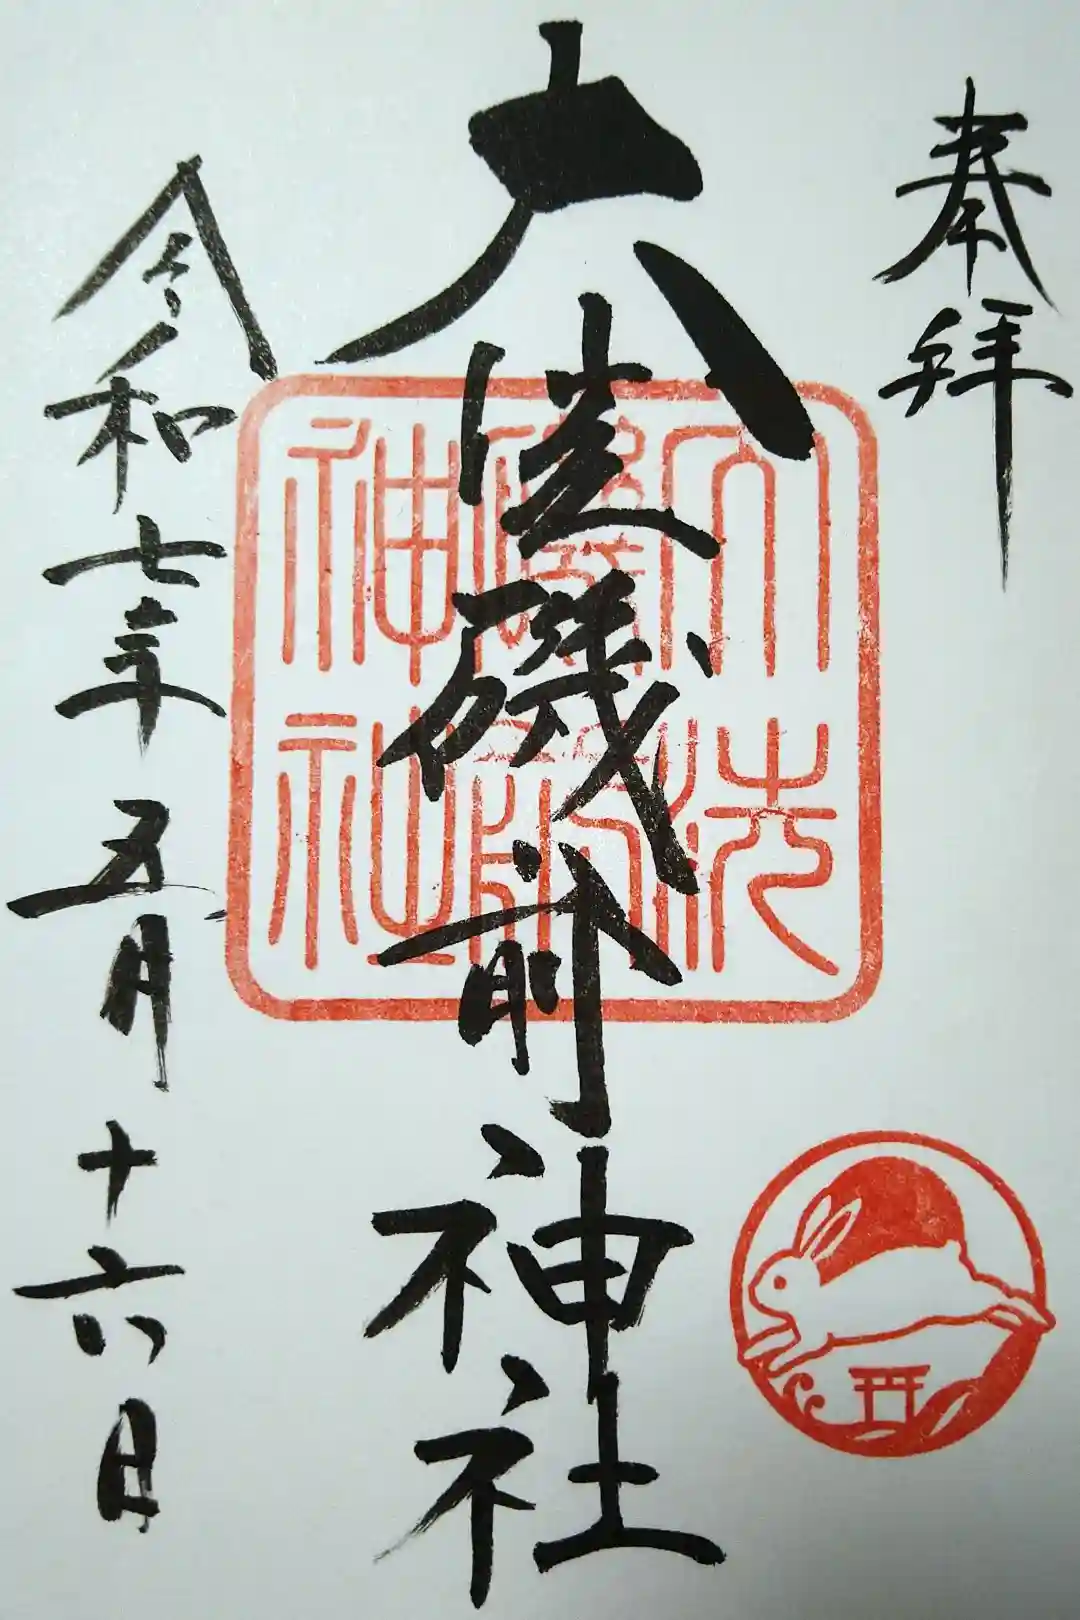 奉拝
大洗磯前神社
大洗磯前神社
令和七年五月十六日